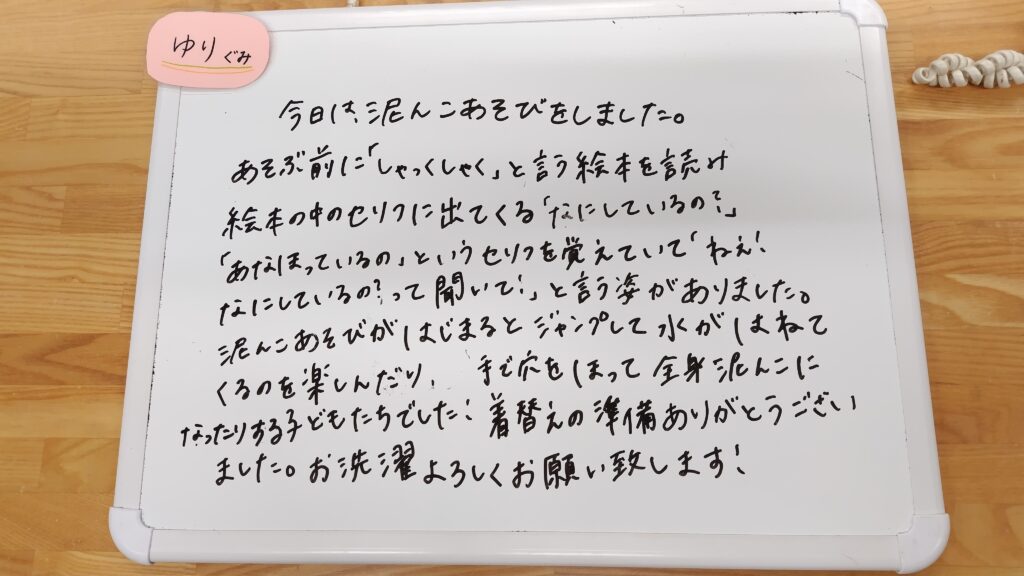 ゆりぐみ
今日は、泥んこあそびをしました。
あそぶ前に「しゃっくしゃく」と言う絵本を読み
絵本の中のセリフに出てくる「なにしているの?」
「あなほっているの」というセリフを覚えていて「ねぇ!
なにしているの?って聞いて!」と言う姿がありました。
泥んこあそびがはじまるとジャンプして水がはねて
くるのを楽しんだり、手で穴をほって全身泥んこに
なったりする子どもたちでした!着替えの準備ありがとうござい
ました。お洗濯よろしくお願い致します!